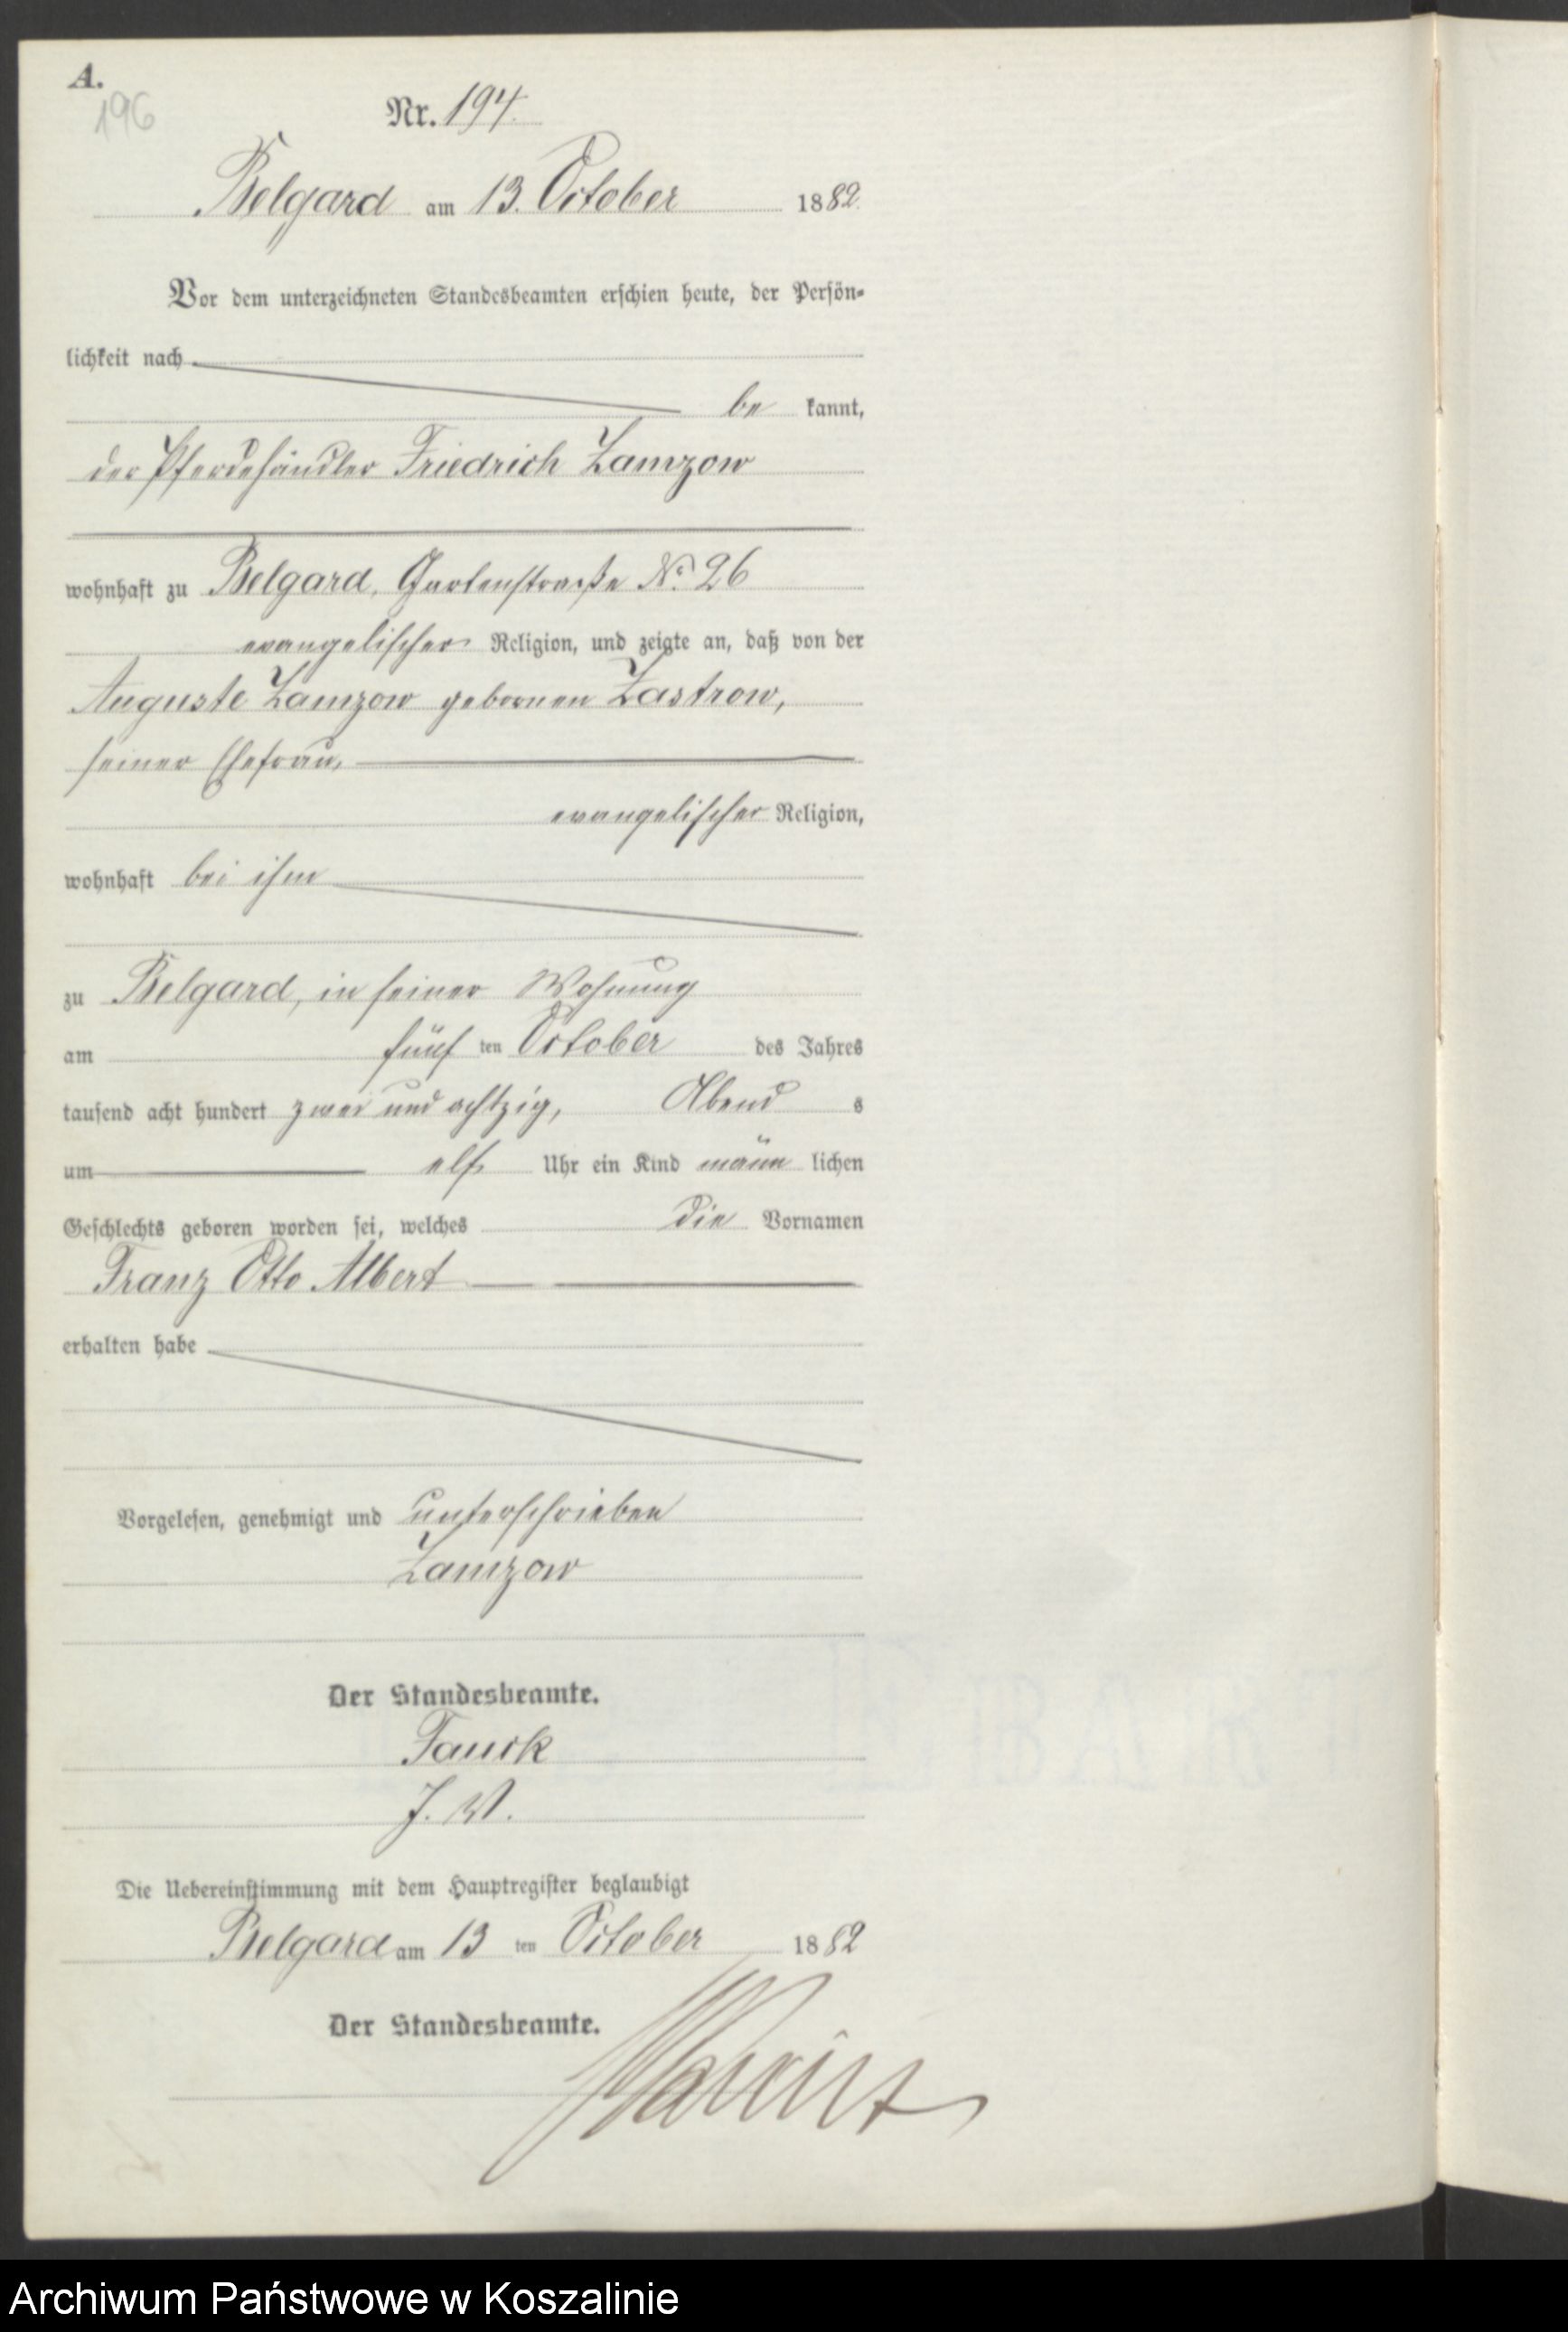 A.
196
Nr. 194.
Belgard am 13. October 1882.
Vor dem unterzeichneten Standesbeamten erschien heute, der Persön-
lichkeit nach
be kannt,
der Pferdehändler Friedrich Zamzow
wohnhaft zu Belgard, Gartenstraße No. 26
evangelischer Religion, und zeigte an, daß von der
Auguste Zamzow gebornen Zastrow,
seiner Ehefrau,
evangelischer Religion,
wohnhaft bei ihm
zu Belgard, in seiner Wohnung
am fünf ten October des Jahres
tausend acht hundert zwei und achtzig, Abend s
um elf Uhr ein Kind männ lichen
Geschlechts geboren worden sei, welches die Vornamen
Franz Otto Albert
erhalten habe
Vorgelesen, genehmigt und unterschrieben
Zamzow
Der Standesbeamte.
Tauck
J. V.
Die Uebereinstimmung mit dem Hauptregister beglaubigt
Belgard am 13 ten October 1882
Der Standesbeamte.
Archiwum Państwowe w Koszalinie